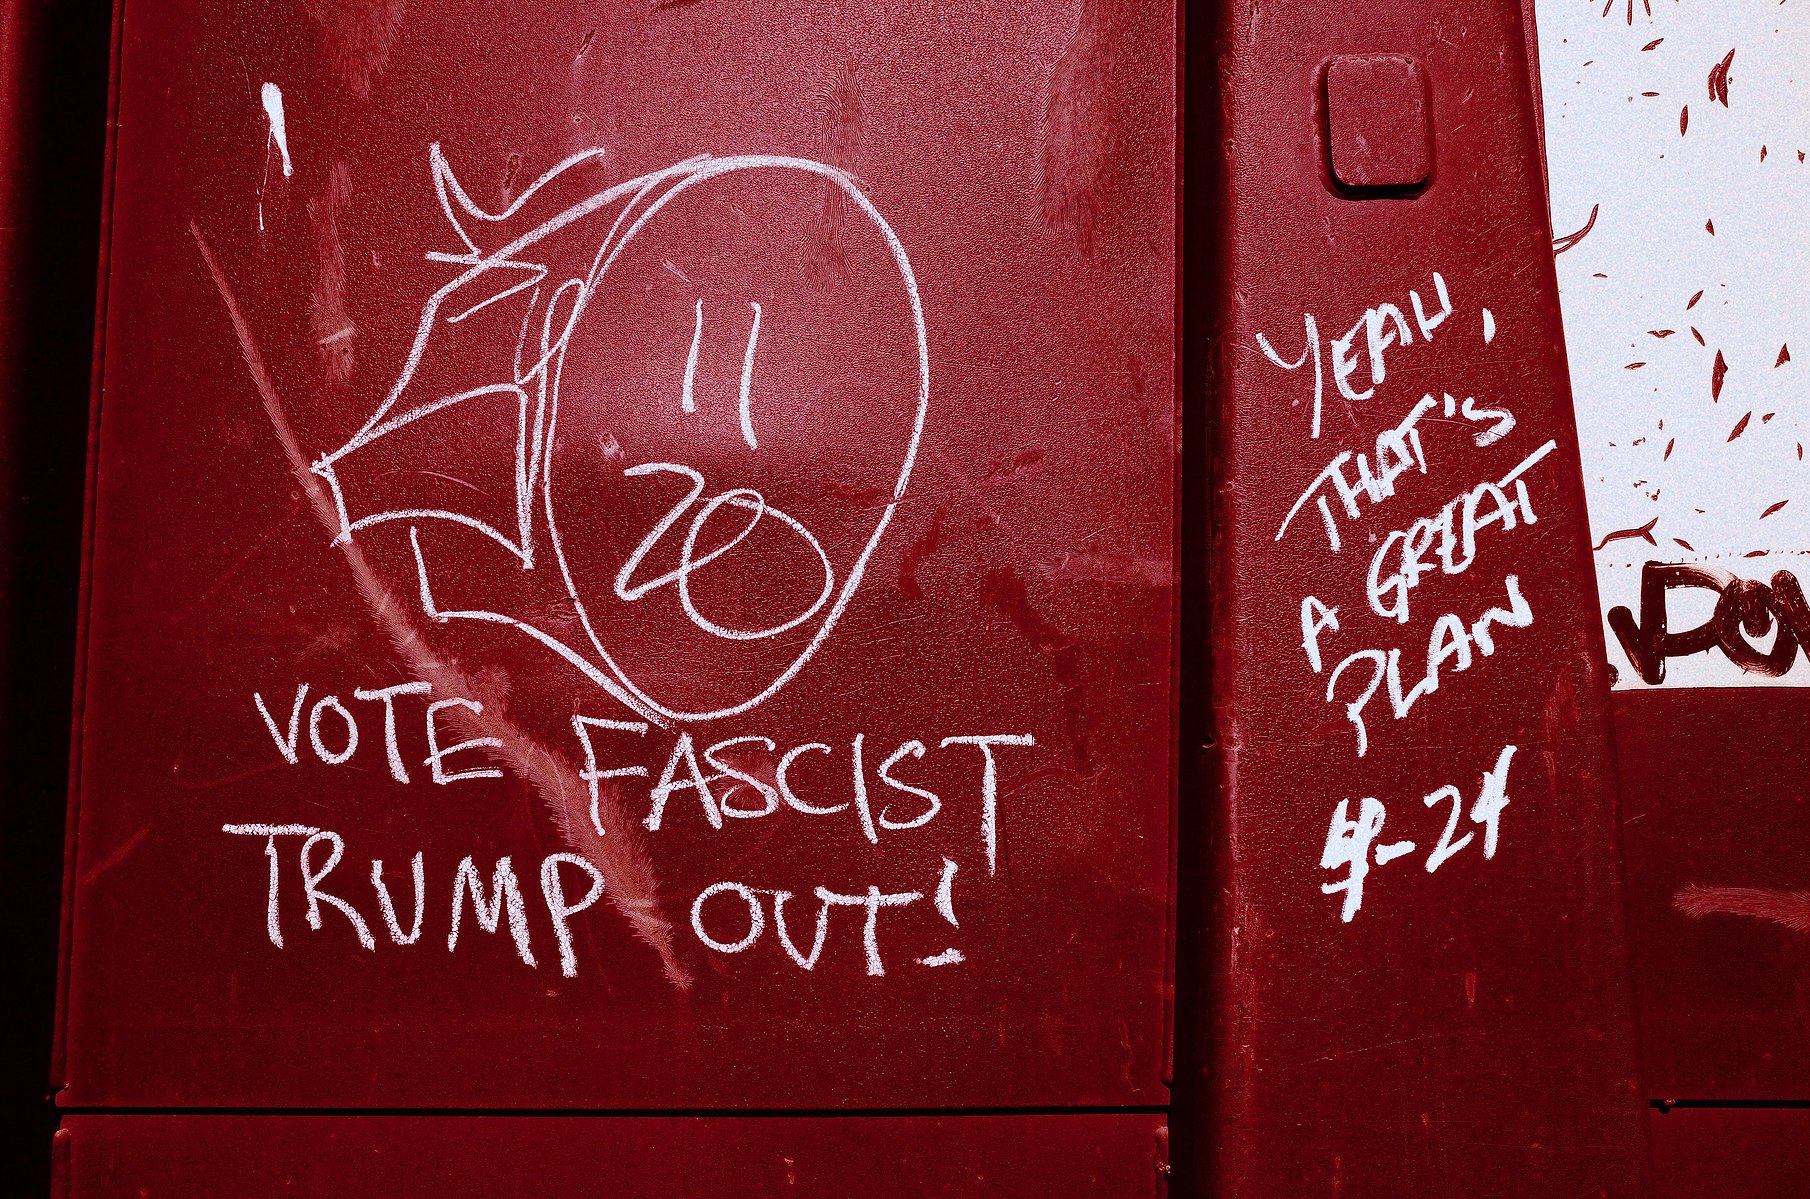 20
VOTE FASCIST
TRUMP OUT!
YEAH,
THAT'S
A GREAT
PLAN
4-24